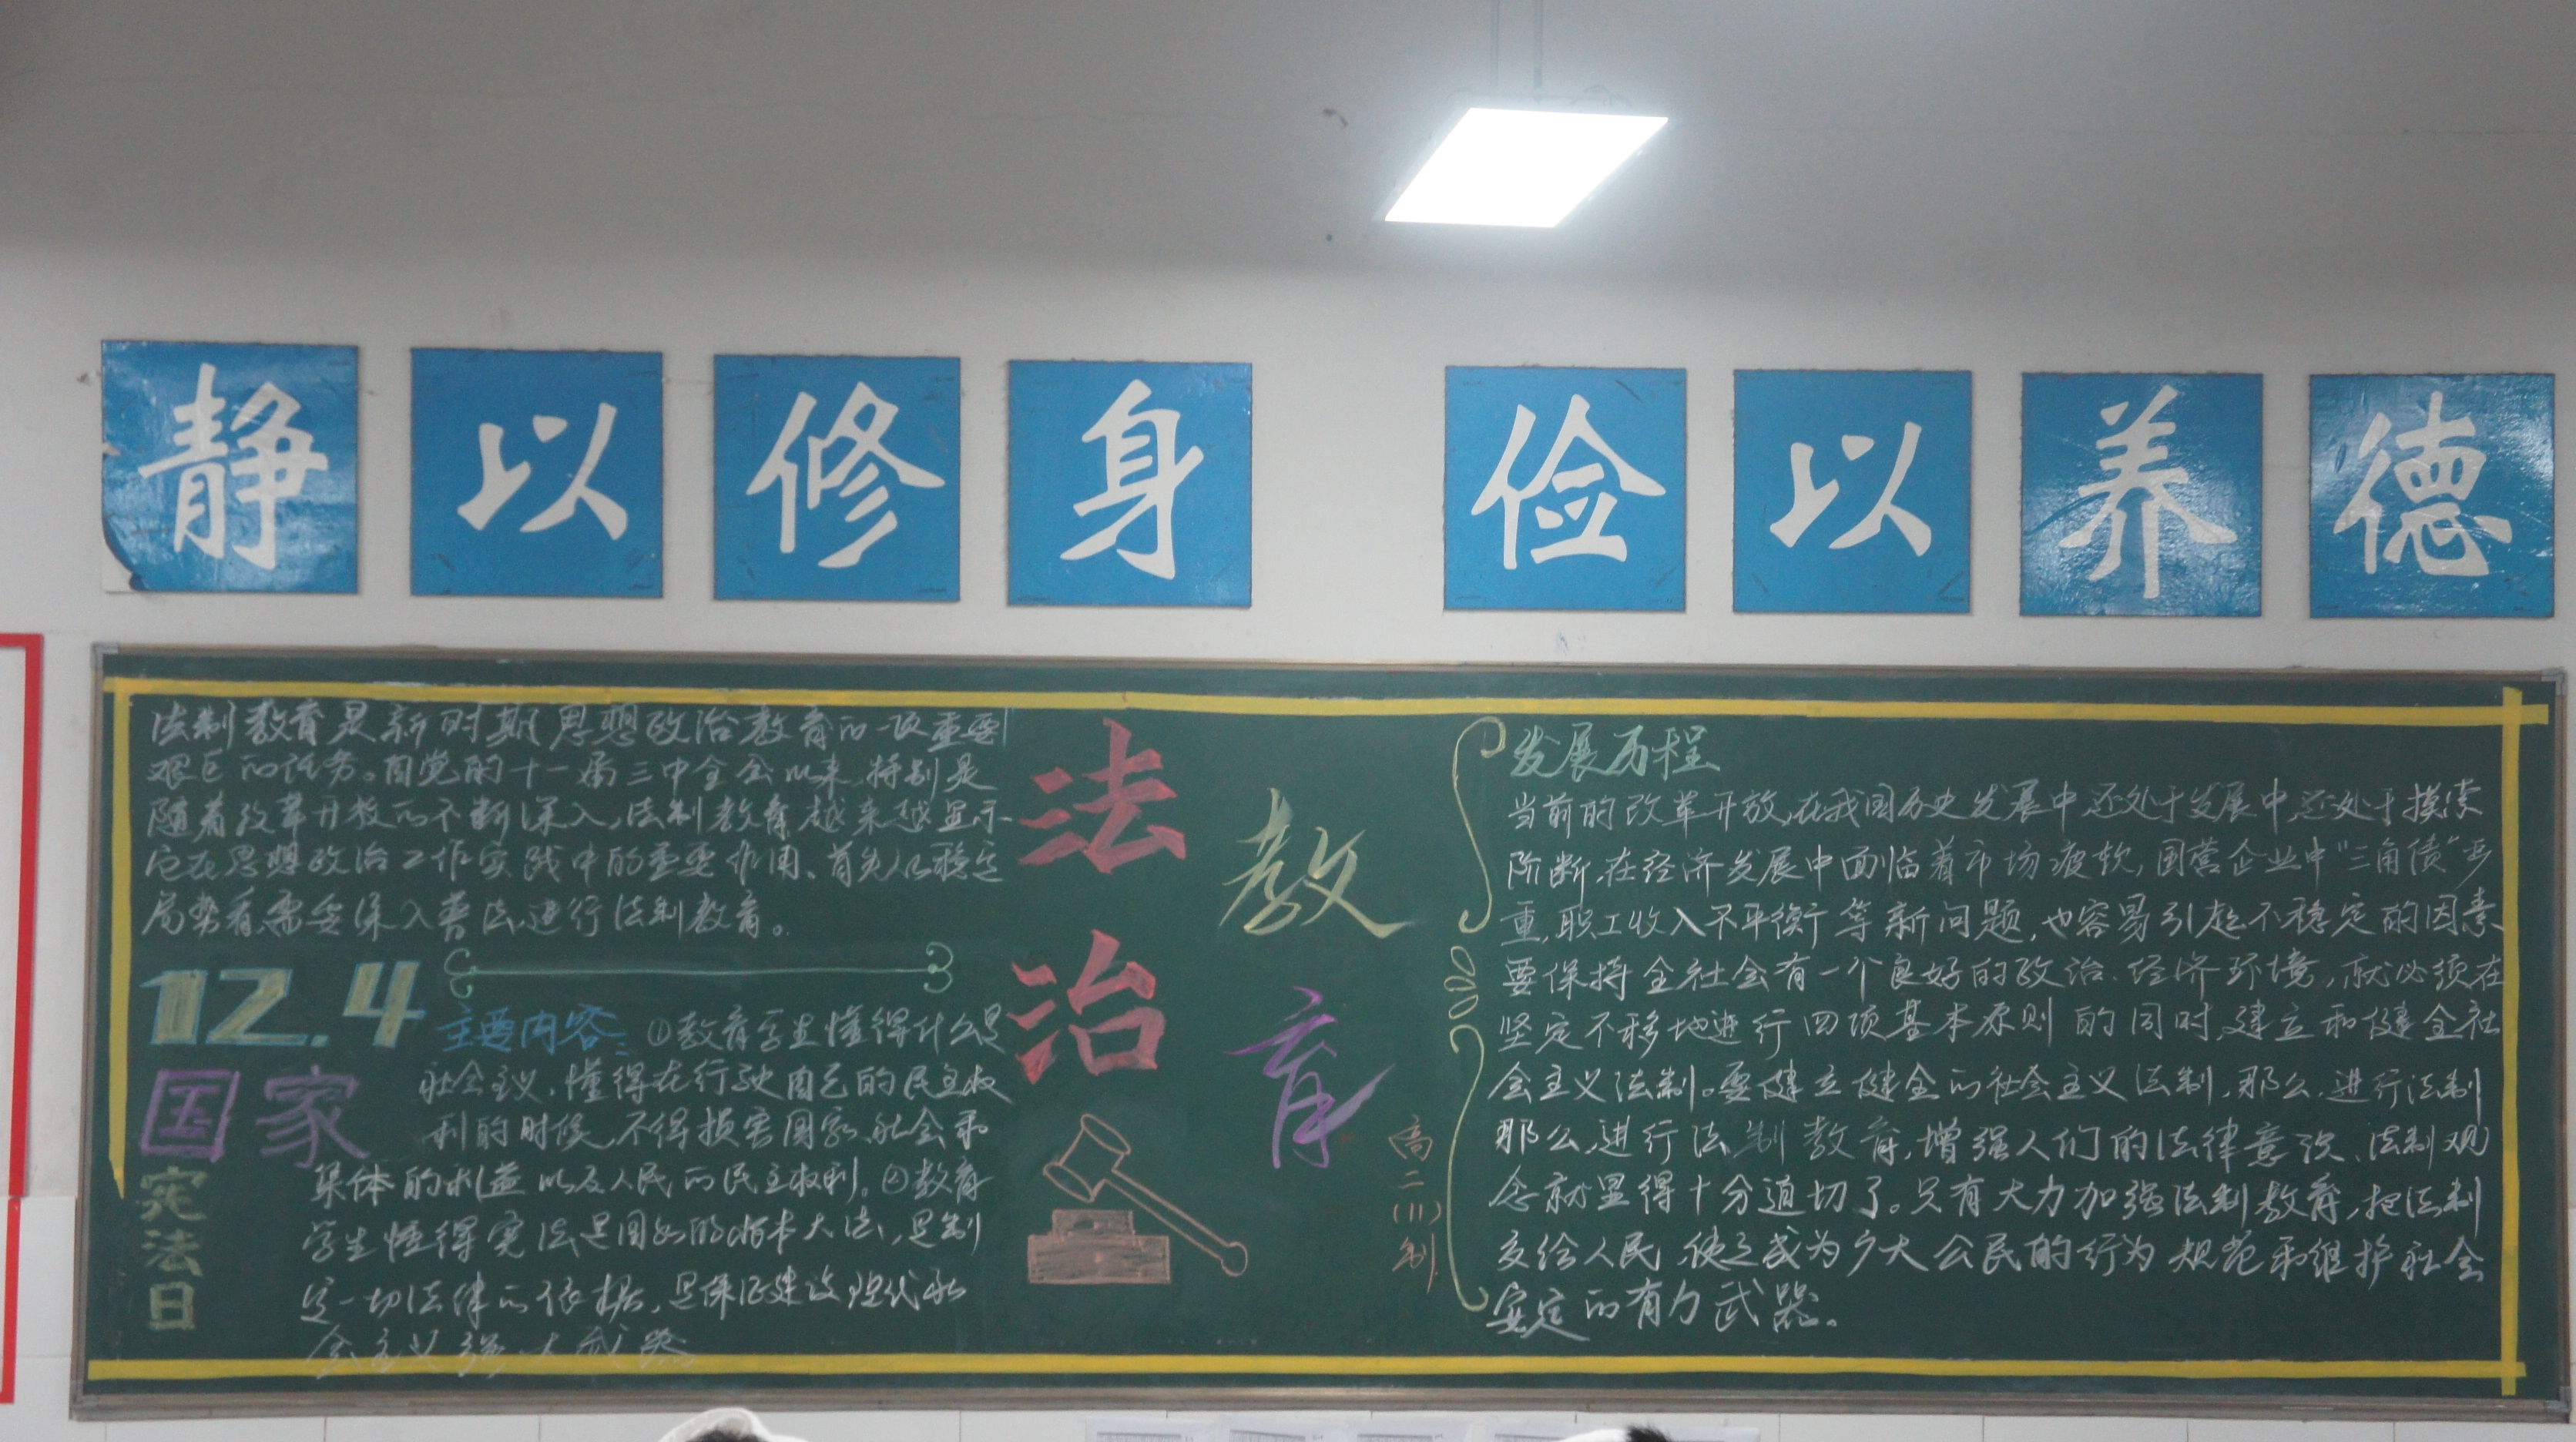 静以修身 俭以养德
法制教育是新时期思想政治教育的一项重要
艰巨的任务。自党的十一届三中全会以来,特别是
随着改革开放的不断深入,法制教育越来越显示
它在思想政治工作实践中的重要作用。首先从稳定
局势看,需要深入普法,进行法制教育。
12.4
国家
宪法日
主要内容: ①教育学生懂得什么是
社会主义,懂得在行驶自己的民主权
利的时候,不得损害国家、社会和
集体的利益以及人民的民主权利。②教育
学生懂得宪法是国家的根本大法,是制
定一切法律的依据,是保证建设现代社
会主义强大武器
法治
教育
高二(11)制
发展历程
当前的改革开放,在我国历史发展中还处于发展中,还处于摸索
阶断,在经济发展中面临着市场疲软,国营企业中“三角债”严
重,职工收入不平衡等新问题,也容易引起不稳定的因素
要保持全社会有一个良好的政治、经济环境,就必须在
坚定不移地进行四项基本原则的同时,建立和健全社
会主义法制。要健立健全的社会主义法制,那么,进行法制
那么,进行法制教育,增强人们的法律意识、法制观
念就显得十分迫切了。只有大力加强法制教育,把法制
交给人民,使之成为广大公民的行为规范和维护社会
安定的有力武器。